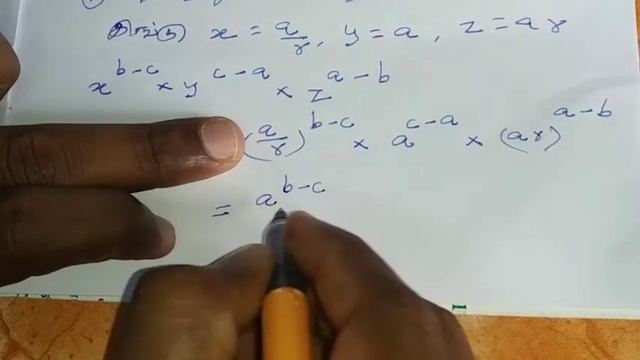 x = a/r, y = a, z = ar
x^{b-c} × y^{c-a} × z^{a-b}
(a/r)^{b-c} × a^{c-a} × (ar)^{a-b}
= a^{b-c}